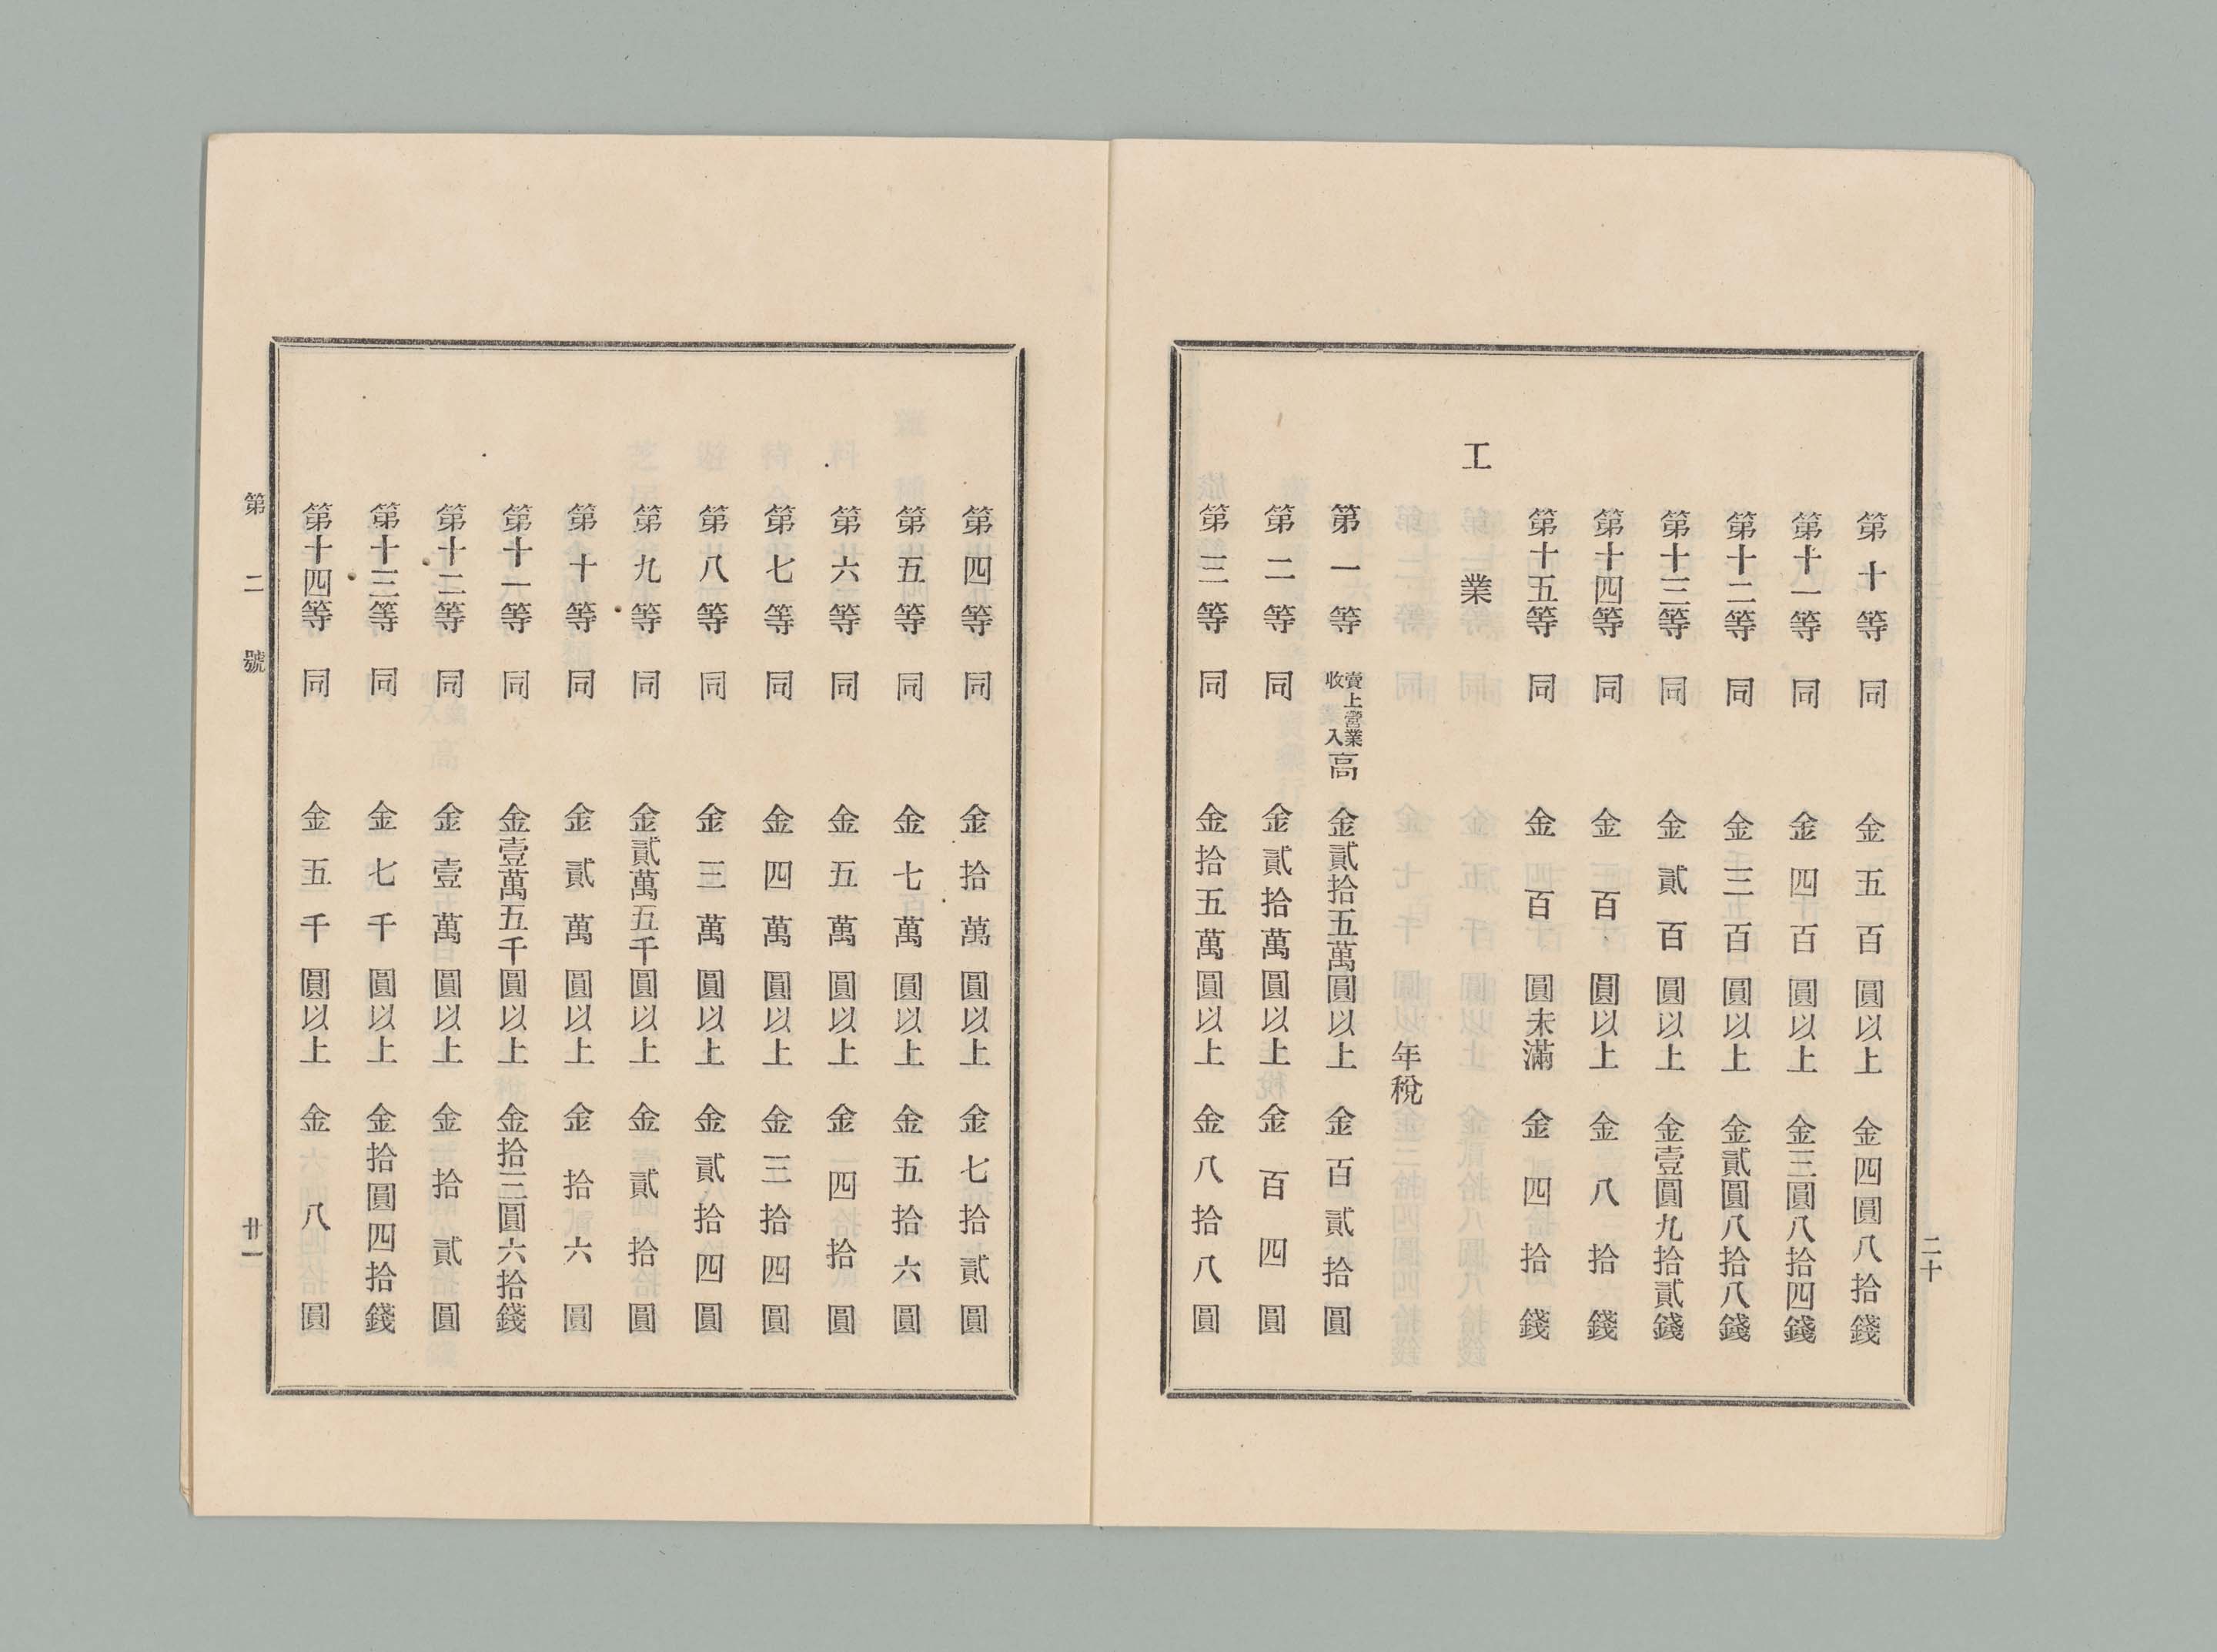 第十等 同 金五百圓以上 金四圓八拾錢
第十一等 同 金四百圓以上 金三圓八拾四錢
第十二等 同 金三百圓以上 金貳圓八拾八錢
第十三等 同 金貳百圓以上 金壹圓九拾貳錢
第十四等 同 金百圓以上 金八拾錢
第十五等 同 金百圓未滿 金四拾錢
工業
年稅
第一等 賣上營業收入高 金貳拾五萬圓以上 金百貳拾圓
第二等 同 金貳拾萬圓以上 金百四圓
第三等 同 金拾五萬圓以上 金八拾八圓
二十
第四等 同 金拾萬圓以上 金七拾貳圓
第五等 同 金七萬圓以上 金五拾六圓
第六等 同 金五萬圓以上 金四拾圓
第七等 同 金四萬圓以上 金三拾四圓
第八等 同 金三萬圓以上 金貳拾四圓
第九等 同 金貳萬五千圓以上 金貳拾圓
第十等 同 金貳萬圓以上 金拾六圓
第十一等 同 金壹萬五千圓以上 金拾三圓六拾錢
第十二等 同 金壹萬圓以上 金拾貳圓
第十三等 同 金七千圓以上 金拾圓四拾錢
第十四等 同 金五千圓以上 金八圓
第二號
廿一